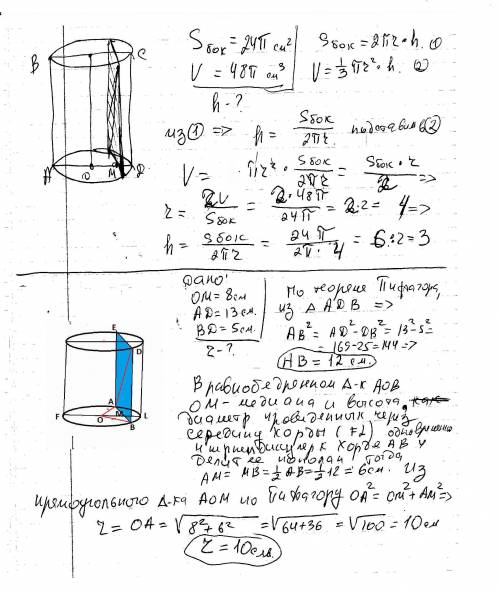 B C
A O M D
Sбок = 24π см²
V = 48π см³
h - ?
Sбок = 2πr·h. ①
V = 1/3 πr²·h. ②
из ① => h = Sбок / 2πr подставим в ②
V = πr² · Sбок / 2πr = Sбок · r / 2 =>
r = 2V / Sбок = 2·48π / 24π = 2·2 = 4 =>
h = Sбок / 2πr = 24π / 2π·4 = 6:2 = 3
E
D
A
F O M L
B
Дано:
OM = 8см
AD = 13см.
BD = 5см.
r - ?
По теореме Пифагора,
из △ADB =>
AB² = AD² - DB² = 13² - 5² =
= 169 - 25 = 144 =>
AB = 12 см.
В равнобедренном Δ-к AOB
OM - медиана и высота,
диаметр проведенных через
середину хорды (FL) одновременно
и перпендикулярен хорде AB и
делит ее пополам, тогда
AM = MB = 1/2 AB = 1/2 12 = 6см. Из
прямоугольного Δ-ка AOM по Пифагору OA² = OM² + AM² =>
r = OA = √8² + 6² = √64 + 36 = √100 = 10см
r = 10см.